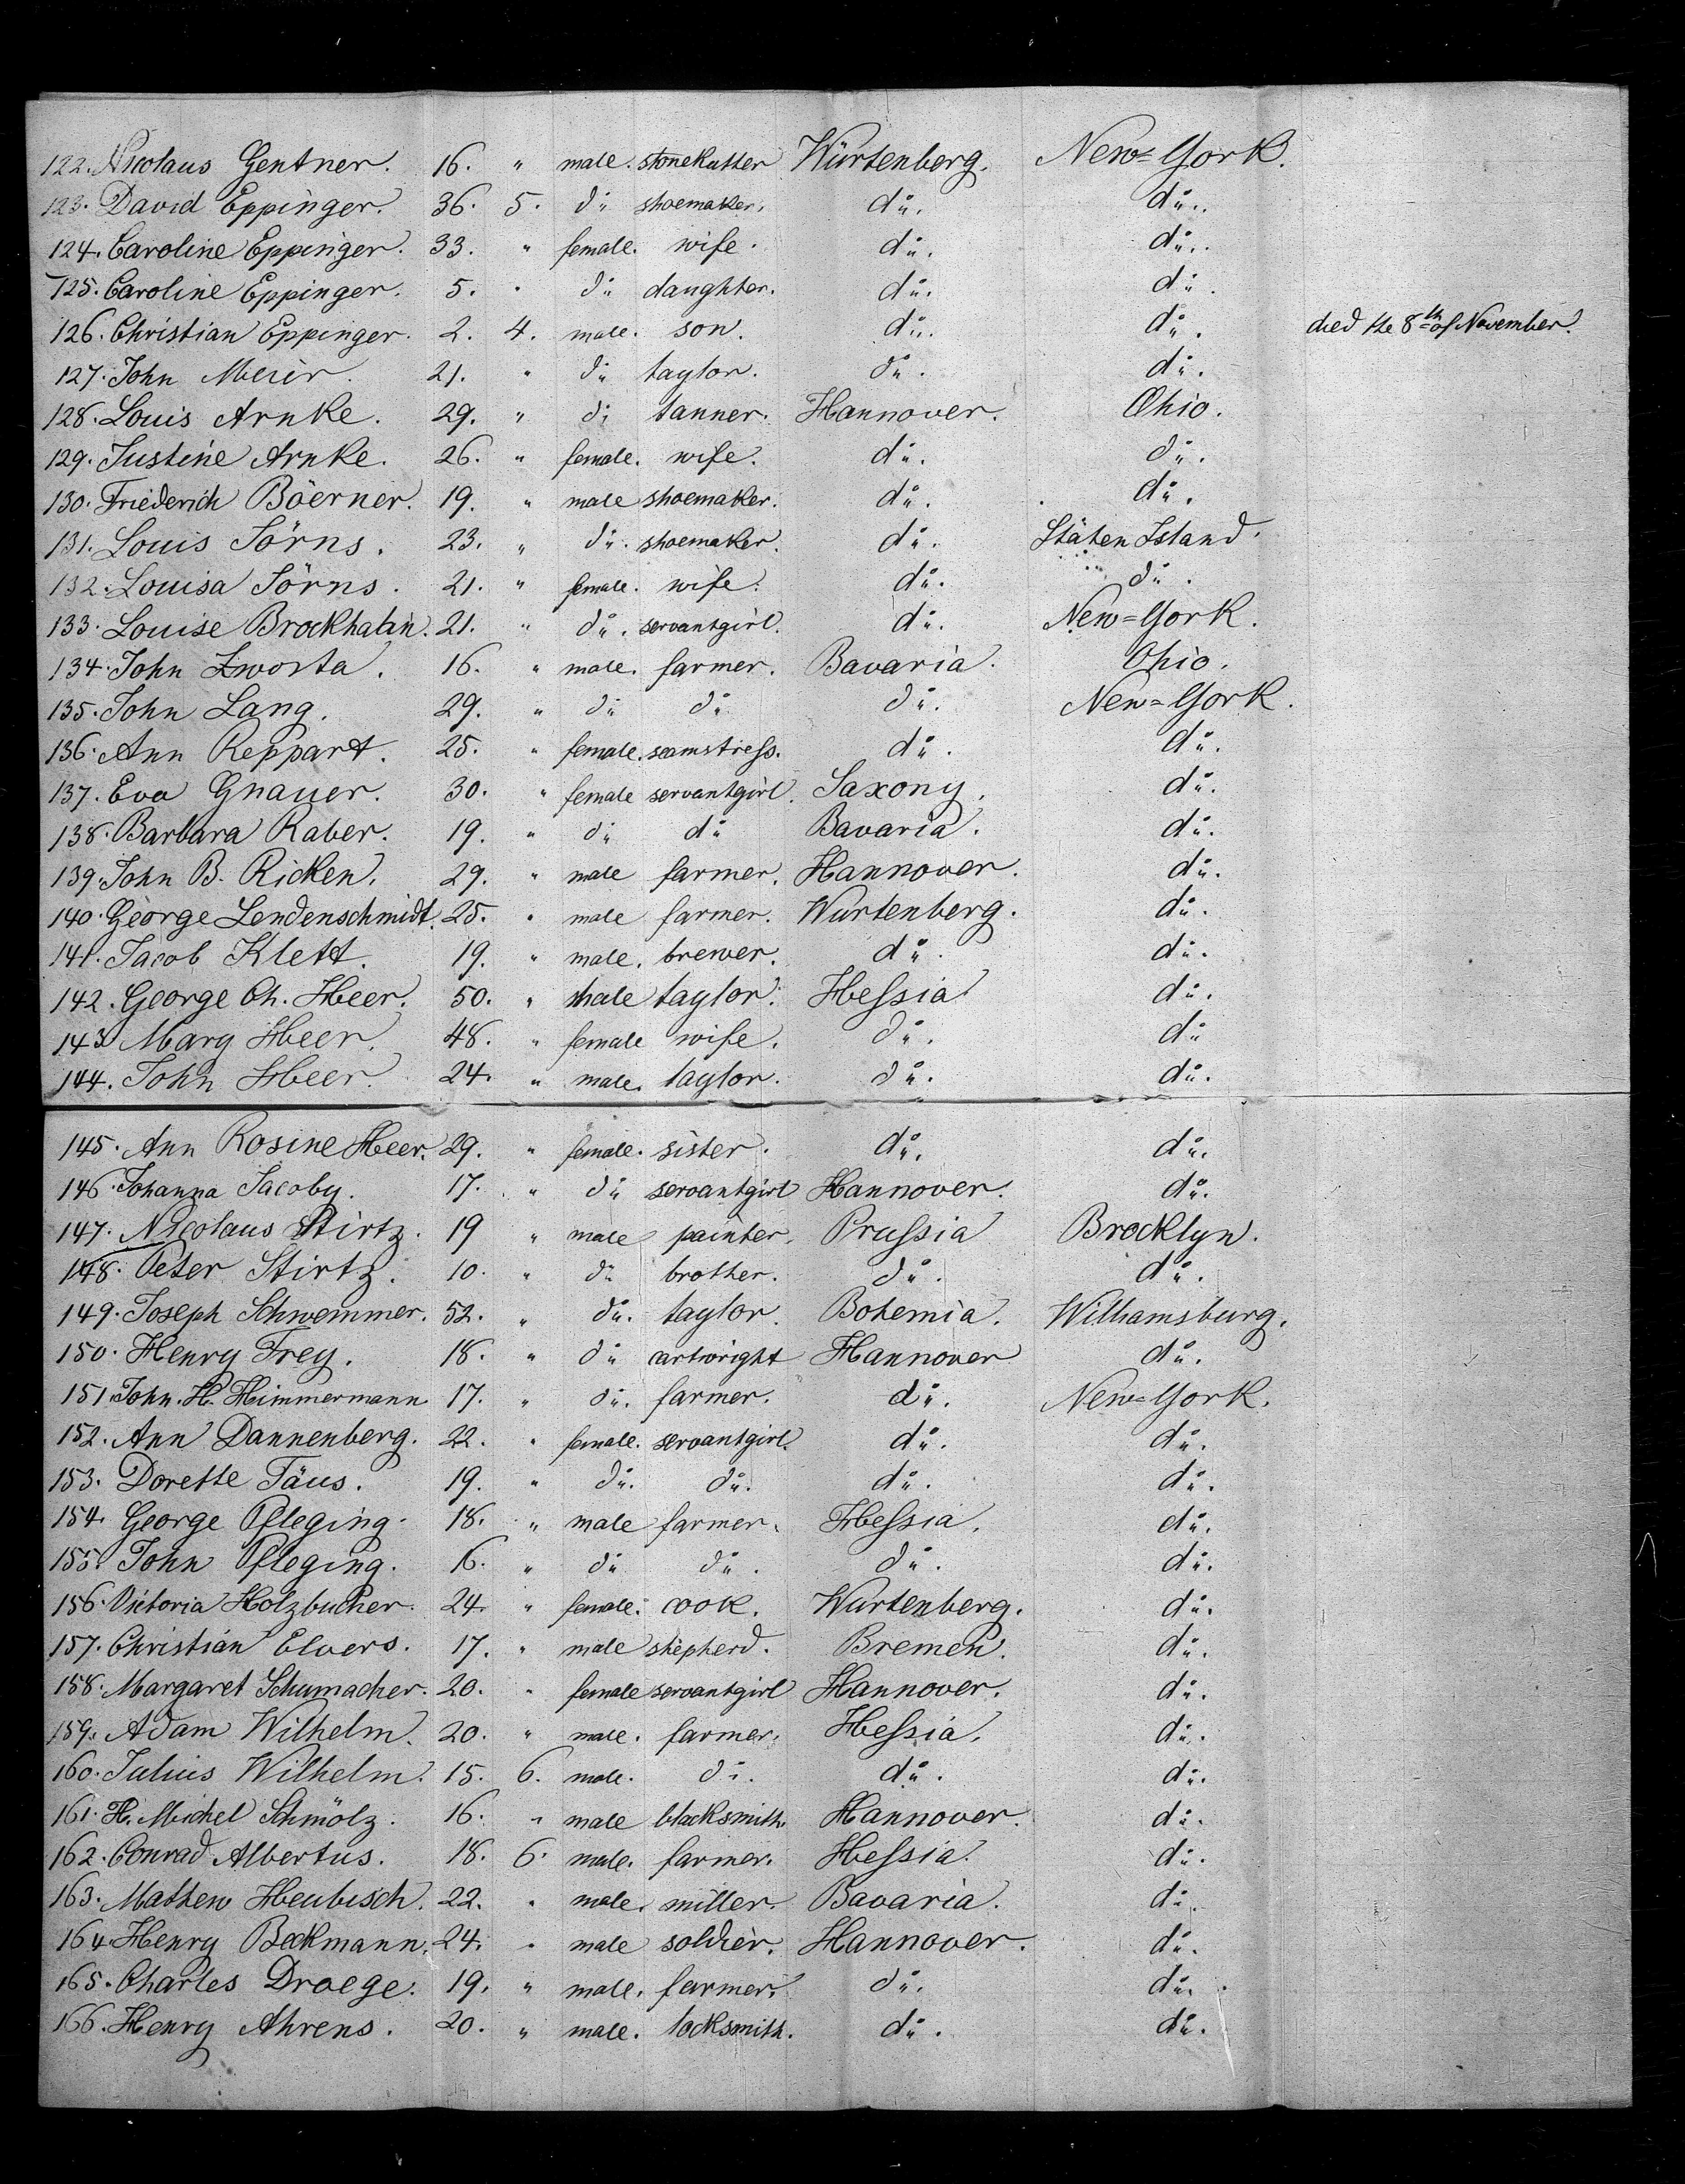 122. Nicolaus Gentner. 16. " male. stonekutter Würtenberg. New=York.
123. David Eppinger. 36. 5. do shoemaker. do. do.
124. Caroline Eppinger. 33. " female. wife. do. do.
125. Caroline Eppinger. 5. " do daughter. do. do.
126. Christian Eppinger. 2. 4. male. son. do. do. died the 8th of November.
127. John Meier. 21. " do taylor. do. do.
128. Louis Arnke. 29. " do tanner. Hannover. Ohio.
129. Justine Arnke. 26. " female. wife. do. do.
130. Friederich Böerner. 19. " male shoemaker. do. do.
131. Louis Jörns. 23. " do. shoemaker. do. Stäten Island.
132. Louisa Jörns. 21. " female. wife. do. do.
133. Louise Brockhahn. 21. " do. servantgirl. do. New=York.
134. John Zworta. 16. " male. farmer. Bavaria. Ohio.
135. John Lang. 29. " do do do. New=York.
136. Ann Reppart. 25. " female. seamstress. do. do.
137. Eva Gnauer. 30. " female servantgirl. Saxony. do.
138. Barbara Raber. 19. " do do Bavaria. do.
139. John B. Ricken. 29. " male farmer. Hannover. do.
140. George Lendenschmidt. 25. " male farmer. Wurtenberg. do.
141. Jacob Klett. 19. " male. brewer. do. do.
142. George Ch. Heer. 50. " male taylor. Hessia do.
143 Mary Heer. 48. " female wife. do. do
144. John Heer. 24. " male. taylor. do. do.
145. Ann Rosine Heer. 29. " female. sister. do. do.
146. Johanna Jacoby. 17. " do servantgirl Hannover. do.
147. Nicolaus Stirtz. 19 " male painter. Prussia Brocklyn.
148. Peter Stirtz. 10. " do brother. do. do.
149. Joseph Schwemmer. 52. " do. taylor. Bohemia. Williamsburg.
150. Henry Frey. 18. " do cartwright Hannover do.
151. John. H. Himmermann. 17. " do. farmer. do. New=York.
152. Ann Dannenberg. 22. " female. servantgirl. do. do.
153. Dorette Täus. 19. " do. do. do. do.
154. George Pfleging. 18. " male farmer. Hessia. do.
155. John Pfleging. 16. " do do. do. do.
156. Victoria Holzbucher. 24. " female. cook. Wurtenberg. do.
157. Christian Elvers. 17. " male shepherd. Bremen. do.
158. Margaret Schumacher. 20. " female servantgirl Hannover. do.
159. Adam Wilhelm. 20. " male. farmer. Hessia. do.
160. Julius Wilhelm. 15. 6. male. do. do. do.
161. H. Michel Schmölz. 16. " male blacksmith. Hannover. do.
162. Conrad Albertus. 18. 6. male. farmer. Hessia. do.
163. Mathew Heubisch. 22. " male. miller. Bavaria. do.
164. Henry Beckmann. 24. " male soldier. Hannover. do.
165. Charles Droege. 19. " male. farmer. do. do.
166. Henry Ahrens. 20. " male. locksmith. do. do.